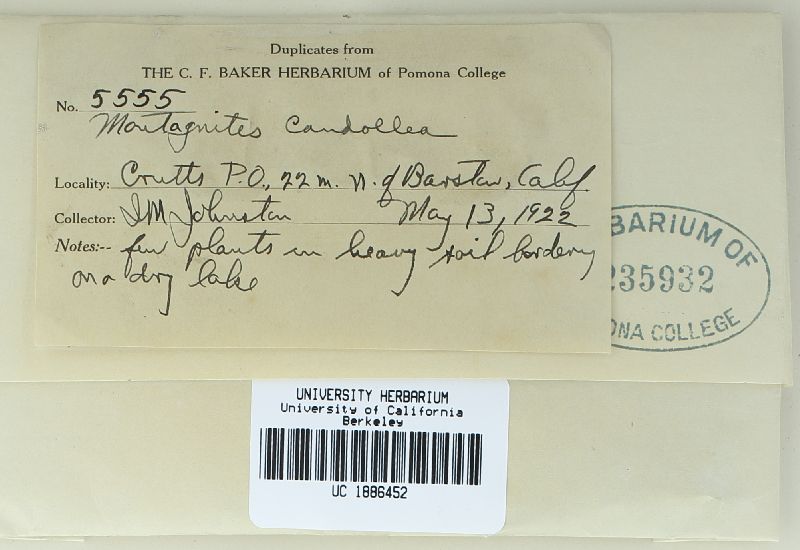 Duplicates from
THE C. F. BAKER HERBARIUM of Pomona College
No. 5555
Montagnites Candollea
Locality: Crutts P.O., 22 m. N. of Barstow, Calif
Collector: I M Johnston May 13, 1922
Notes:-- few plants in heavy soil bordering
on a dry lake
BARIUM OF
235932
ONA COLLEGE
UNIVERSITY HERBARIUM
University of California
Berkeley
UC 1886452